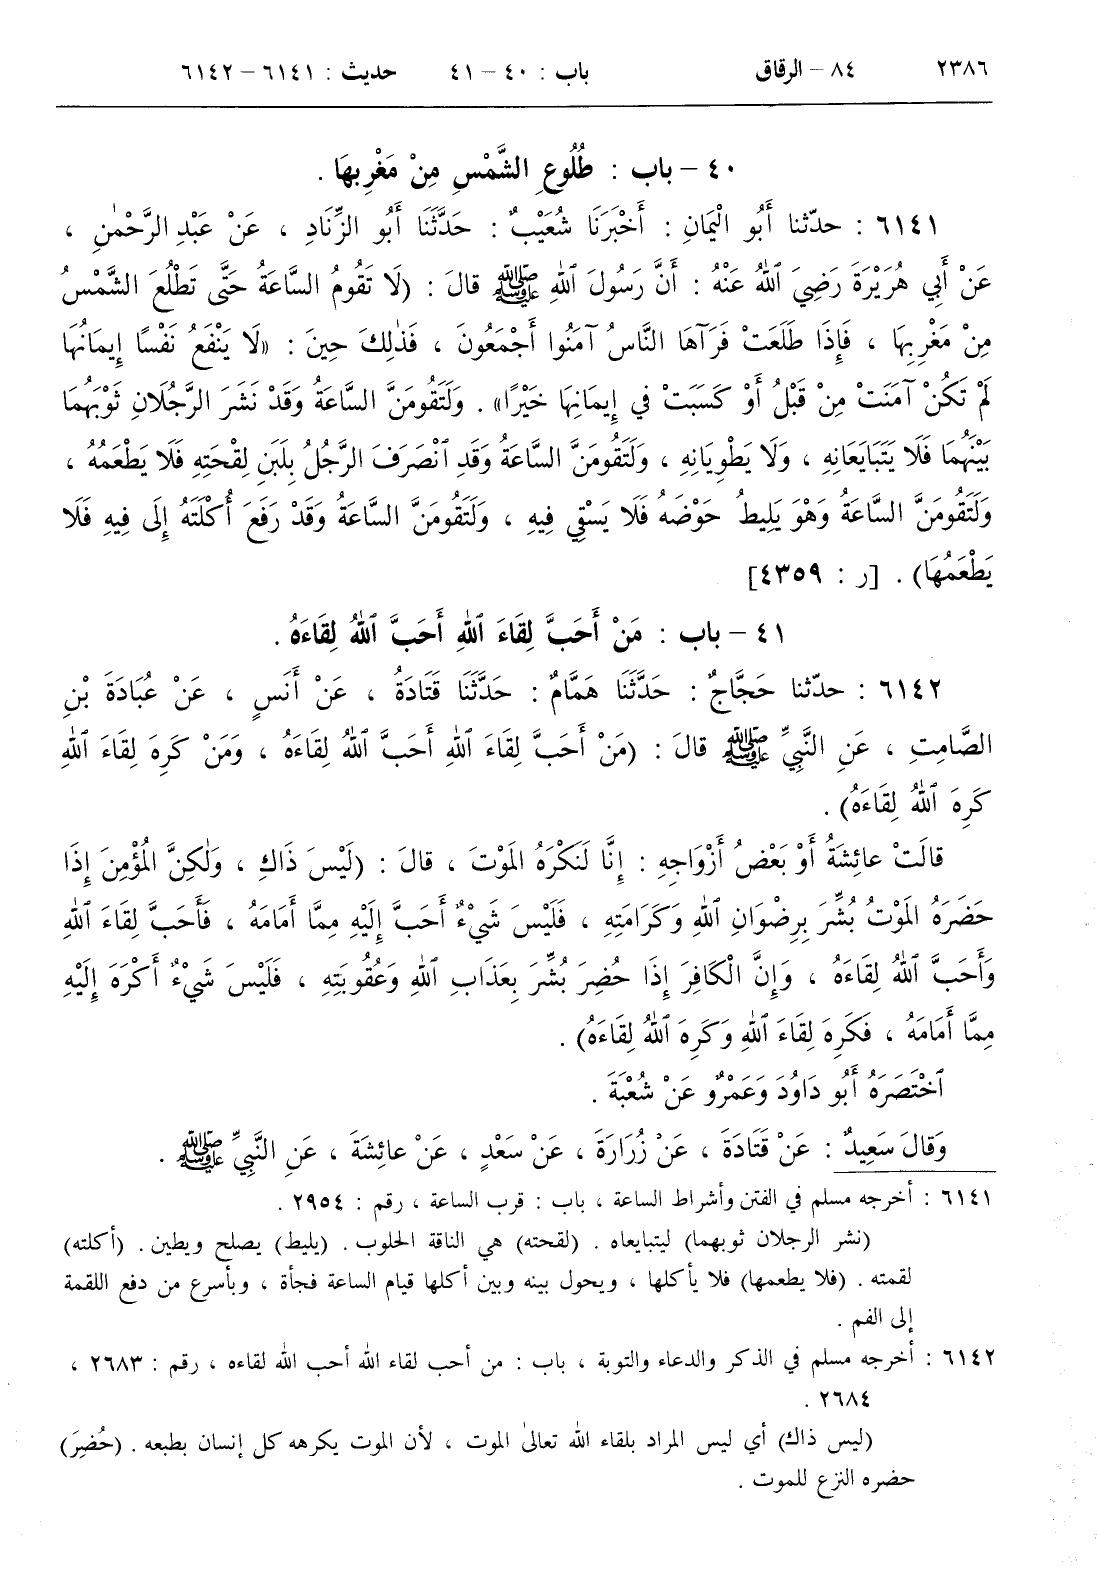 ٢٣٨٦ ٨٤ – الرقاق باب : ٤٠ – ٤١ حديث : ٦١٤١ – ٦١٤٢
٤٠ – باب : طُلُوعِ الشَّمْسِ مِنْ مَغْرِبِهَا .
٦١٤١ : حدّثنا أَبُو الْيَمَانِ : أَخْبَرَنَا شُعَيْبٌ : حَدَّثَنَا أَبُو الزِّنَادِ ، عَنْ عَبْدِ الرَّحْمٰنِ ،
عَنْ أَبِي هُرَيْرَةَ رَضِيَ ٱللهُ عَنْهُ : أَنَّ رَسُولَ ٱللهِ ﷺ قالَ : (لَا تَقُومُ السَّاعَةُ حَتَّى تَطْلُعَ الشَّمْسُ
مِنْ مَغْرِبِهَا ، فَإِذَا طَلَعَتْ فَرَآهَا النَّاسُ آمَنُوا أَجْمَعُونَ ، فَذٰلِكَ حِينَ : «لَا يَنْفَعُ نَفْسًا إِيمَانُهَا
لَمْ تَكُنْ آمَنَتْ مِنْ قَبْلُ أَوْ كَسَبَتْ في إِيمَانِهَا خَيْرًا» . وَلَتَقُومَنَّ السَّاعَةُ وَقَدْ نَشَرَ الرَّجُلَانِ ثَوْبَهُمَا
بَيْنَهُمَا فَلَا يَتَبَايَعَانِهِ ، وَلَا يَطْوِيَانِهِ ، وَلَتَقُومَنَّ السَّاعَةُ وَقَدِ ٱنْصَرَفَ الرَّجُلُ بِلَبَنِ لِقْحَتِهِ فَلَا يَطْعَمُهُ ،
وَلَتَقُومَنَّ السَّاعَةُ وَهْوَ يَلِيطُ حَوْضَهُ فَلَا يَسْقِي فِيهِ ، وَلَتَقُومَنَّ السَّاعَةُ وَقَدْ رَفَعَ أُكْلَتَهُ إِلَى فِيهِ فَلَا
يَطْعَمُهَا) . [ر : ٤٣٥٩]
٤١ – باب : مَنْ أَحَبَّ لِقَاءَ ٱللهِ أَحَبَّ ٱللهُ لِقَاءَهُ .
٦١٤٢ : حدّثنا حَجَّاجٌ : حَدَّثَنَا هَمَّامٌ : حَدَّثَنَا قَتَادَةُ ، عَنْ أَنَسٍ ، عَنْ عُبَادَةَ بْنِ
الصَّامِتِ ، عَنِ النَّبِيِّ ﷺ قالَ : (مَنْ أَحَبَّ لِقَاءَ ٱللهِ أَحَبَّ ٱللهُ لِقَاءَهُ ، وَمَنْ كَرِهَ لِقَاءَ ٱللهِ
كَرِهَ ٱللهُ لِقَاءَهُ) .
قالَتْ عائِشَةُ أَوْ بَعْضُ أَزْوَاجِهِ : إِنَّا لَنَكْرَهُ المَوْتَ ، قالَ : (لَيْسَ ذَاكِ ، وَلٰكِنَّ المُؤْمِنَ إِذَا
حَضَرَهُ المَوْتُ بُشِّرَ بِرِضْوَانِ ٱللهِ وَكَرَامَتِهِ ، فَلَيْسَ شَيْءٌ أَحَبَّ إِلَيْهِ مِمَّا أَمَامَهُ ، فَأَحَبَّ لِقَاءَ ٱللهِ
وَأَحَبَّ ٱللهُ لِقَاءَهُ ، وَإِنَّ الْكَافِرَ إِذَا حُضِرَ بُشِّرَ بِعَذَابِ ٱللهِ وَعُقُوبَتِهِ ، فَلَيْسَ شَيْءٌ أَكْرَهَ إِلَيْهِ
مِمَّا أَمَامَهُ ، فَكَرِهَ لِقَاءَ ٱللهِ وَكَرِهَ ٱللهُ لِقَاءَهُ) .
ٱخْتَصَرَهُ أَبُو دَاوُدَ وَعَمْرٌو عَنْ شُعْبَةَ .
وَقَالَ سَعِيدٌ : عَنْ قَتَادَةَ ، عَنْ زُرَارَةَ ، عَنْ سَعْدٍ ، عَنْ عائِشَةَ ، عَنِ النَّبِيِّ ﷺ .
٦١٤١ : أخرجه مسلم في الفتن وأشراط الساعة ، باب : قرب الساعة ، رقم : ٢٩٥٤ .
(نشر الرجلان ثوبهما) ليتبايعاه . (لقحته) هي الناقة الحلوب . (يليط) يصلح ويطين . (أكلته)
لقمته . (فلا يطعمها) فلا يأكلها ، ويحول بينه وبين أكلها قيام الساعة فجأة ، وبأسرع من دفع اللقمة
إلى الفم .
٦١٤٢ : أخرجه مسلم في الذكر والدعاء والتوبة ، باب : من أحب لقاء الله أحب الله لقاءه ، رقم : ٢٦٨٣ ،
٢٦٨٤ .
(ليس ذاك) أي ليس المراد بلقاء الله تعالىٰ الموت ، لأن الموت يكرهه كل إنسان بطبعه . (حُضِرَ)
حضره النزع للموت .